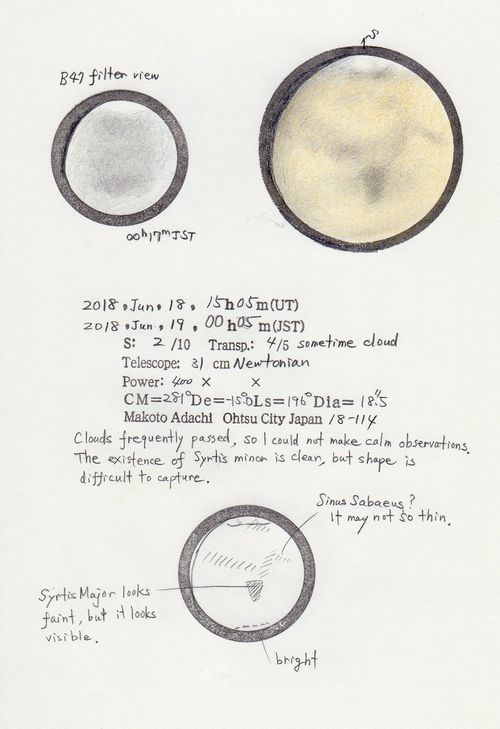 B47 filter view
S
00h17mJST
2018, Jun, 18, 15h05m(UT)
2018, Jun, 19, 00h05m(JST)
S: 2 /10 Transp.: 4/5 sometime cloud
Telescope: 31 cm Newtonian
Power: 400 × ×
CM=281°De=-15°Ls=196°Dia= 18".5
Makoto Adachi Ohtsu City Japan 18-114
Clouds frequently passed, so I could not make calm observations.
The existence of Syrtis minor is clear, but shape is
difficult to capture.
Sinus Sabaeus?
It may not so thin.
Syrtis Major looks
faint, but it looks
visible.
bright